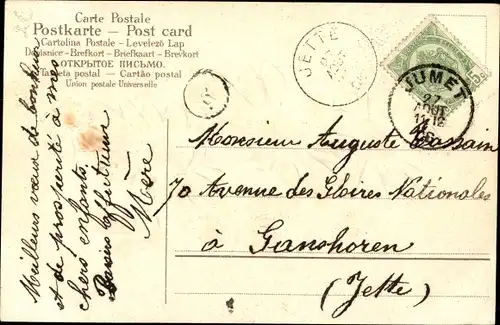 Carte Postale
Postkarte – Post card
Cartolina Postale – Levelező Lap
Dopisnice – Brefkort – Briefkaart – Brevkort
ОТКРЫТОЕ ПИСЬМО.
Tarjeta postal – Cartão postal
Union postale Universelle
JETTE
JUMET
27
AOUT
11-12
5
Meilleurs vœux de bonheur
et de prospérité à mes
chers enfants
Baisers affectueux
Mère
Monsieur Auguste
70 Avenue des Gloires Nationales
à Ganshoren
(Jette)